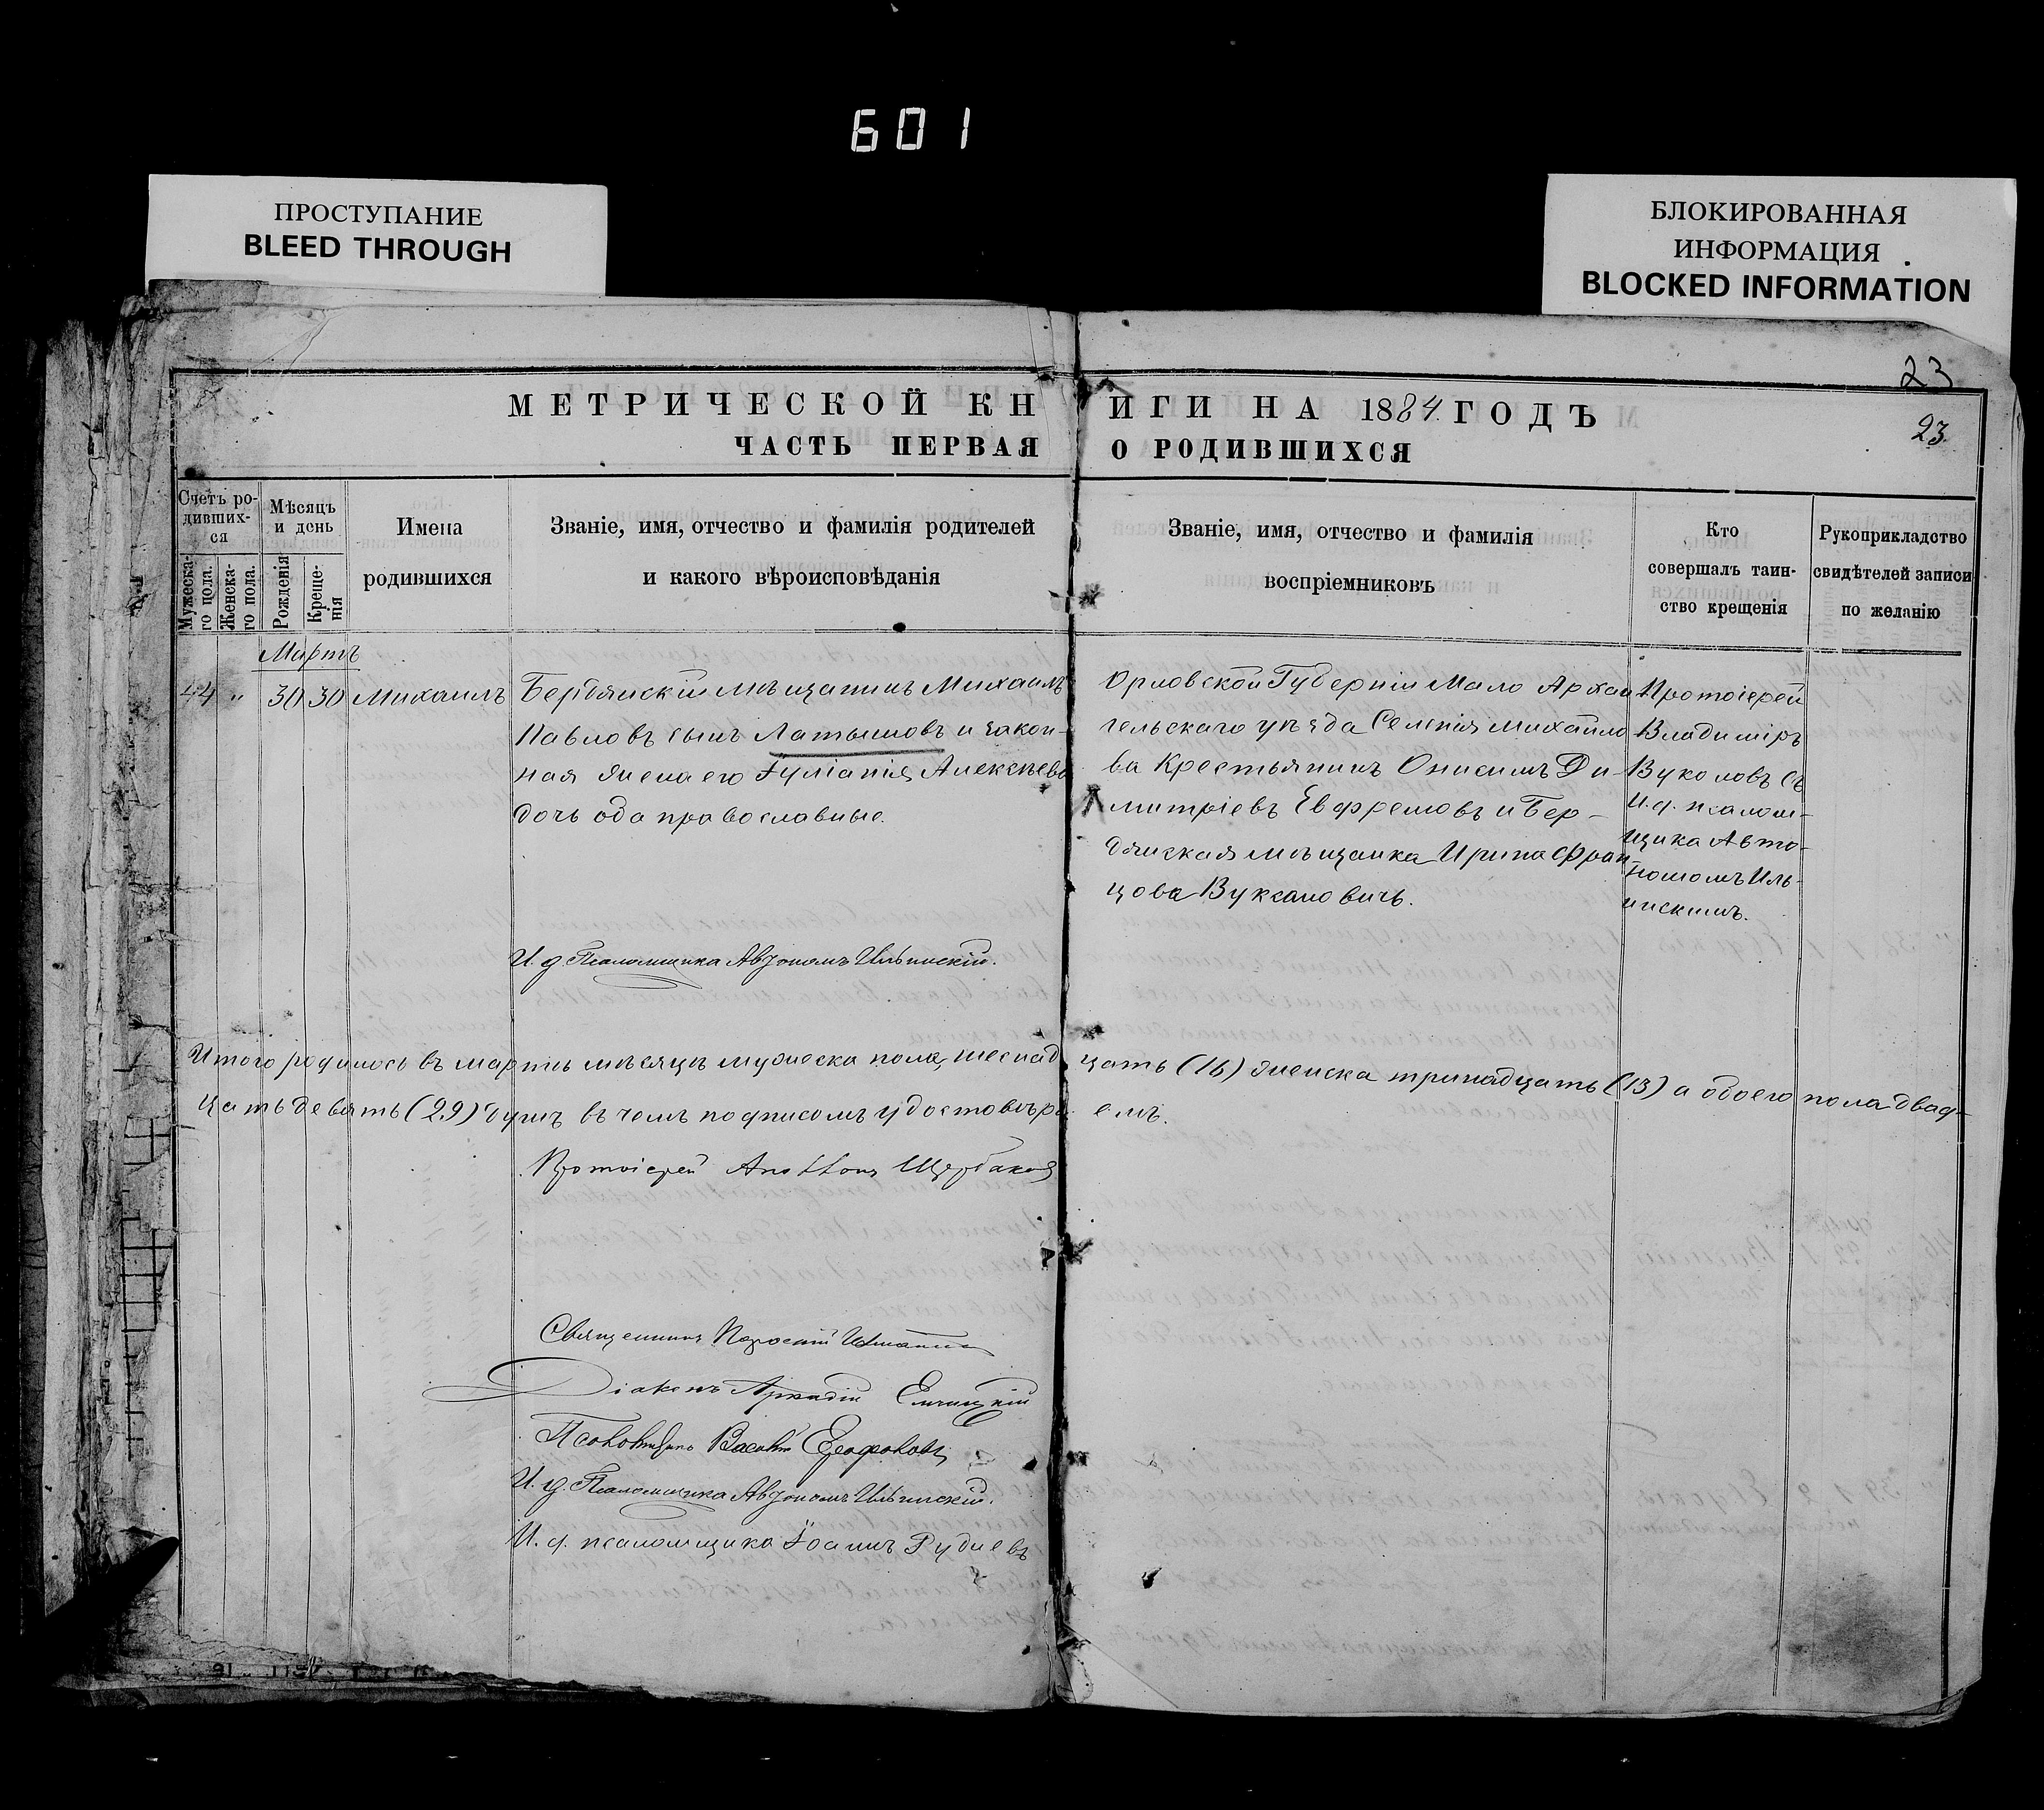 601
ПРОСТУПАНИЕ
BLEED THROUGH
БЛОКИРОВАННАЯ
ИНФОРМАЦИЯ
BLOCKED INFORMATION
23
МЕТРИЧЕСКОЙ КНИГИ НА 1884 ГОДЪ
23.
ЧАСТЬ ПЕРВАЯ О РОДИВШИХСЯ
Счетъ ро-
дивших-
ся
Мужеска-
го пола.
Женска-
го пола.
Мѣсяцъ
и день
Рожденія
Креще-
нія
Имена
родившихся
Званіе, имя, отчество и фамилія родителей
и какого вѣроисповѣданія
Званіе, имя, отчество и фамилія
воспріемниковъ
Кто
совершалъ таин-
ство крещенія
Рукоприкладство
свидѣтелей записи
по желанію
Мартъ
44 " 30 30 Михаилъ
Бердянскій мѣщанинъ Михаилъ
Павловъ сынъ Латышовъ и закон-
ная жена его Іуліанія Алексѣева
дочь оба православные.
Орловской Губерніи Мало Архан
гельскаго уѣзда Селенія Михайло
ва Крестьянинъ Онисимъ Ди-
митріевъ Евфремовъ и Бер-
дянская мѣщанка Ирина Фран-
цова Вуксановичъ.
Протоіерей
Владиміръ
Вуколовъ съ
И. д. псалом-
щика Авто-
номомъ Иль-
инскимъ.
И. д. Псаломщика Автономъ Ильинскій.
Итого родилось въ мартѣ мѣсяцѣ мужеска пола, шеснадцать (16) женска тринадцать (13) а обоего пола двад-
цать девять (29) душъ въ чемъ подписомъ удостовѣряемъ.
Протоіерей Щербаковъ
Священникъ
Діаконъ Аркадій
Псаломщикъ
И. д. Псаломщика Автономъ Ильинскій.
И. д. псаломщика Іоаннъ Рудневъ